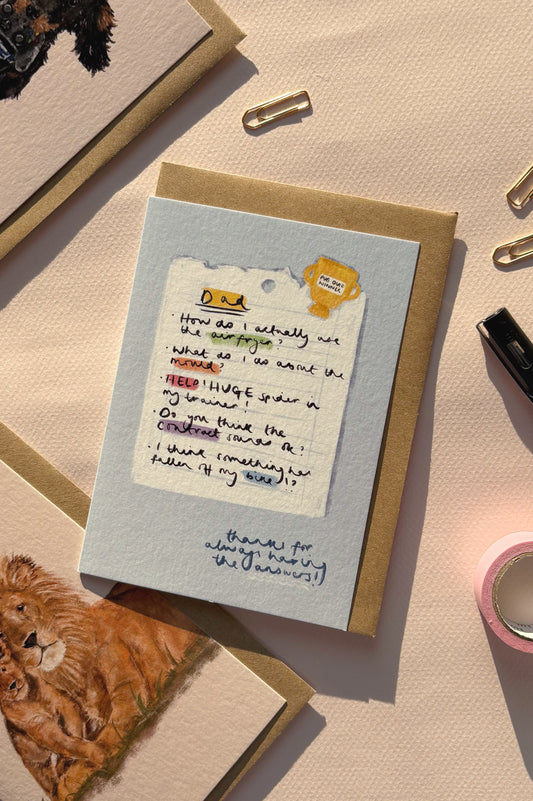 PUB QUIZ
WINNER
Dad
• How do I actually use
the airfryer?
• What do I do about the
mould?
• HELP! HUGE spider in
my trainer!
• Do you think the
contract sounds ok?
• I think something has
fallen off my bike!?
thanks for
always having
the answers!